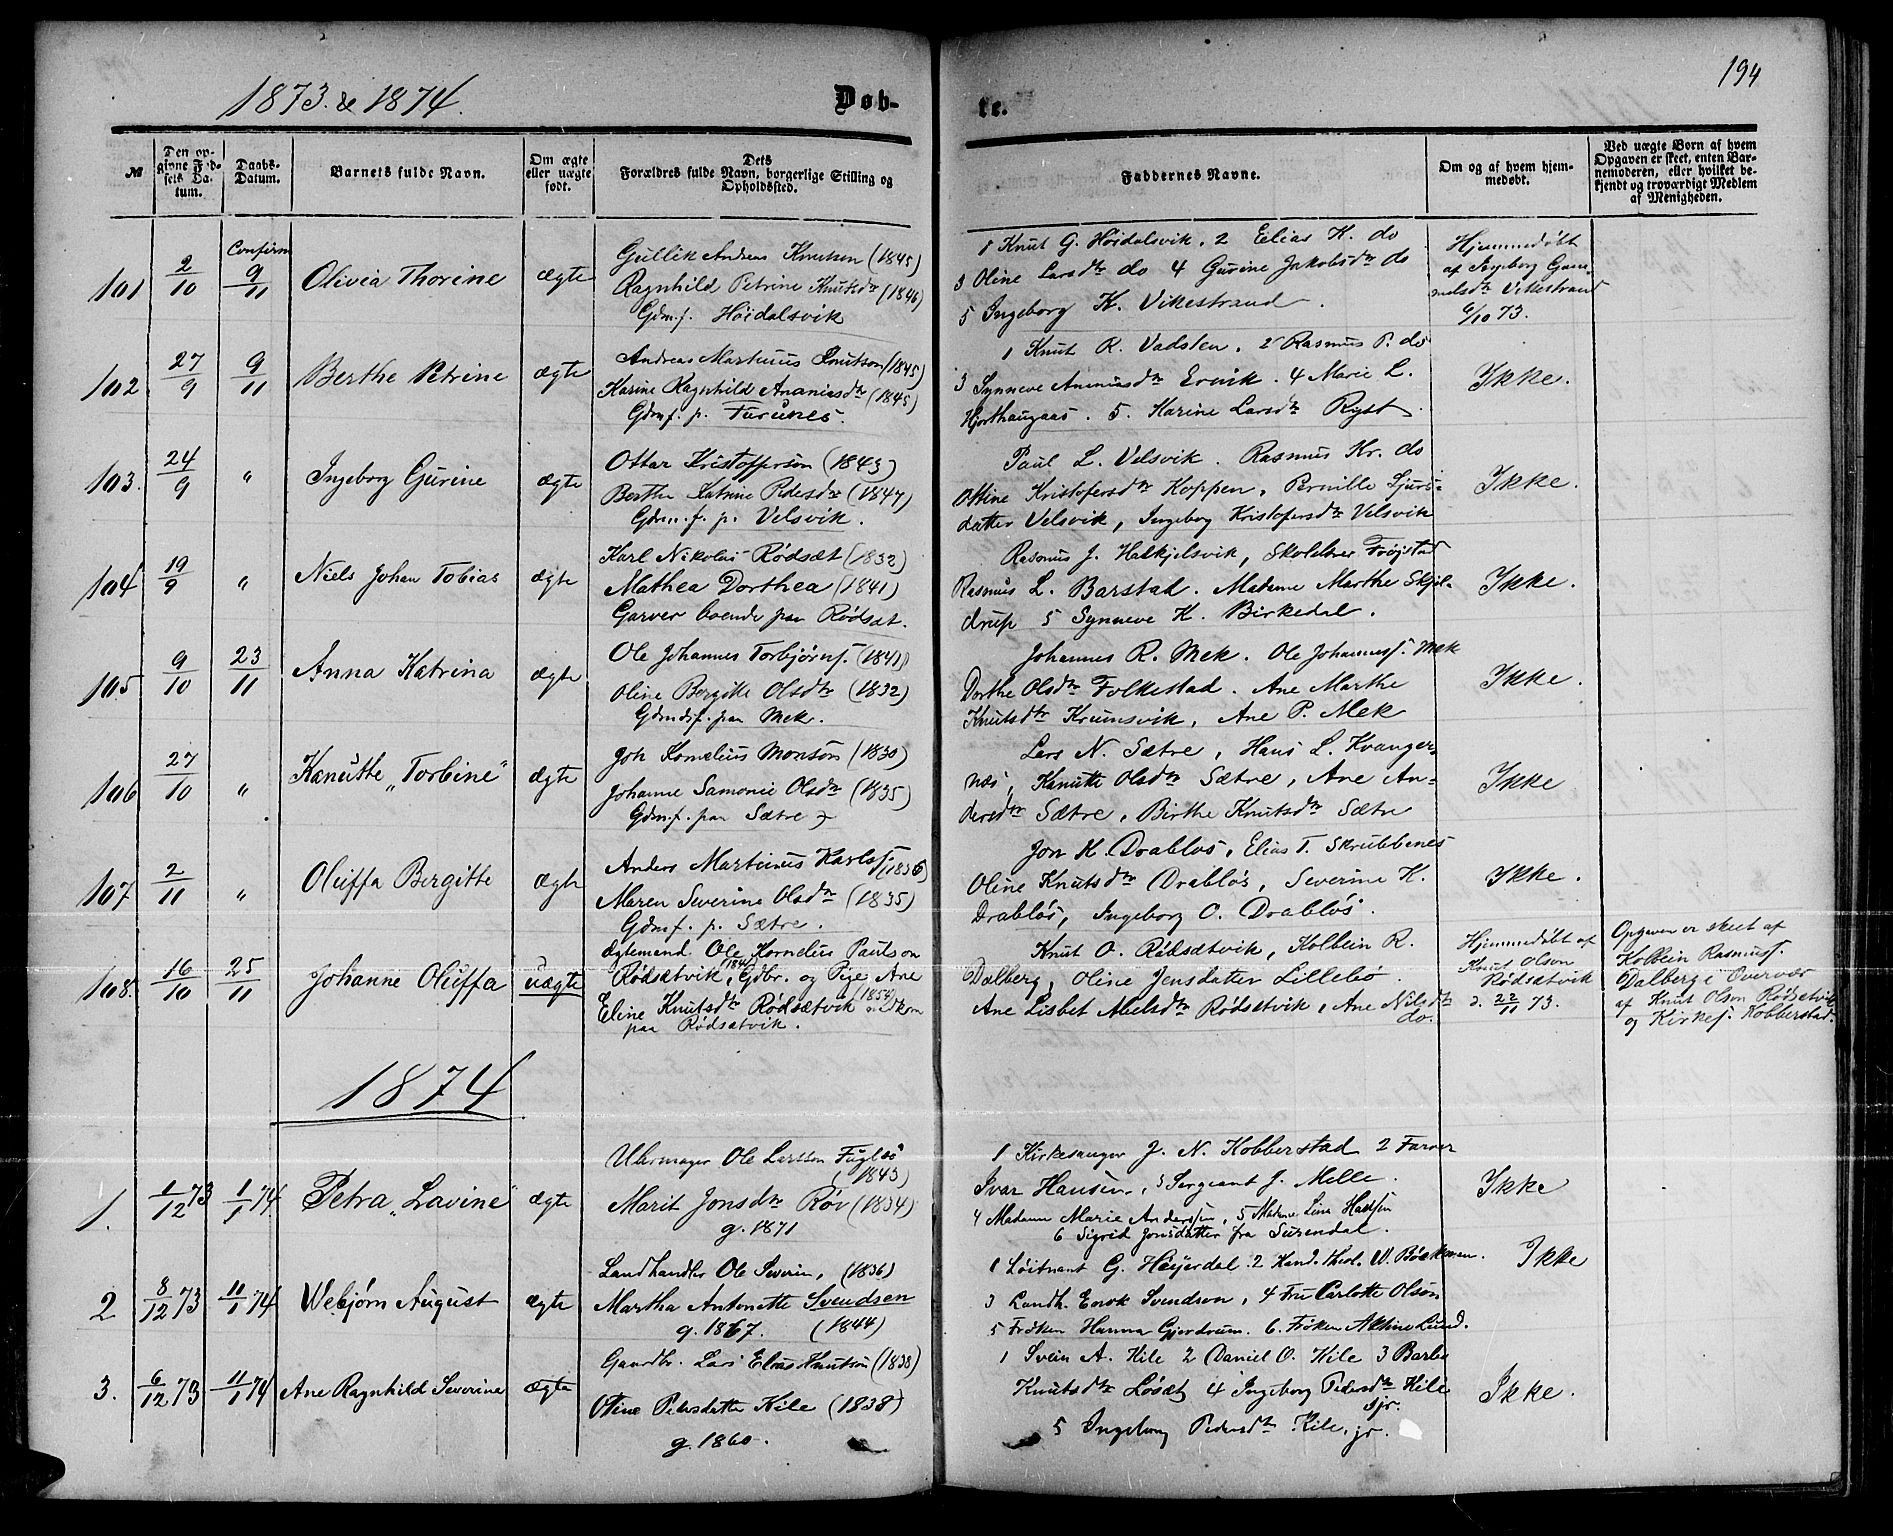 194
1873 & 1874.
Døb-
te.
№
Den op-
givne Fød-
sels Da-
tum.
Daabs-
Datum.
Barnets fulde Navn.
Om ægte
eller uægte
født.
Dets
Forældres fulde Navn, borgerlige Stilling og
Opholdssted.
Faddernes Navne.
Om og af hvem hjem-
medøbt.
Ved uægte Børn af hvem
Opgaven er skeet, enten Bar-
nemoderen, eller hvilket be-
kjendt og troværdigt Medlem
af Menigheden.
101 2/10 Confirm 9/11 Olivia Thorine ægte
Gullik Andreas Knutsen (1845)
Ragnhild Petrine Knutsdtr (1846)
Gdm.f. Höidalsvik
1 Knut G. Höidalsvik, 2 Elias K. do
3 Oline Larsdtr do 4 Gurine Jakobsdtr do
5 Ingeborg K. Vikestrand.
Hjemmedöbt
af Ingeborg Gam-
melsdtr Vikestrand
6/10 73.
102 27/9 9/11 Berthe Petrine ægte
Andreas Martinus Knutson (1845)
Karine Ragnhild Ananiasdtr (1845)
Gdmf. p. Furunes.
1 Knut R. Vadsten. 2 Rasmus P. do
3 Synneve Ananiasdtr Ervik. 4 Marie L.
Hjorthaugaas. 5. Karine Larsdtr Ryst.
Ikke.
103. 24/9 " Ingeborg Gurine ægte
Ottar Kristofferson (1843)
Berthe Katrine Pedersdtr (1847)
Gdm.f. p. Velsvik.
Paul L. Velsvik. Rasmus Kr. do
Ottine Kristofersdtr Koppen, Pernille Sjurs-
datter Velsvik, Ingeborg Kristofersdtr Velsvik
Ikke.
104 19/9 " Niels Johan Tobias ægte
Karl Nikolai Rødsæt (1832)
Mathea Dorthea (1841)
Garver boende paa Rødsæt.
Rasmus J. Halkjelsvik, Skolelærer Frøystad
Rasmus L. Barstad. Madame Marthe Skjel-
drup 5 Synneve K. Birkedal.
Ikke.
105 9/10 23/11 Anna Katrina ægte
Ole Johannes Torbjørns. (1841)
Oline Bergitte Olsdtr (1832)
Gdmdsf. paa Mek.
Johannes R. Mek. Ole Johanness. Mek
Dorthe Olsdtr Folkestad. Ane Marthe
Knutsdtr Krumsvik, Ane P. Mek
Ikke.
106 27/10 " Kanutte "Torbine" ægte
Joh Kornelius Monsön (1830)
Johanne Samonie Olsdtr (1835)
Gdm.f. paa Sætre
Lars N. Sætre, Hans L. Kvanger-
næs, Kanutte Olsdtr Sætre, Ane An-
dersdtr Sætre, Birthe Knutsdtr Sætre
Ikke
107 2/11 " Oluffa Bergitte ægte
Anders Martinus Karls. (1836)
Maren Severine Olsdtr (1835)
Gdmf. p. Sætre.
Jon K. Drabløs, Elias T. Skrubbenes
Oline Knutsdtr Drabløs, Severine K.
Drabløs, Ingeborg O. Drabløs.
Ikke.
108. 16/10 25/11 Johanne Oluffa uægte
Ægtemand Ole Kornelius Paulson
Rødsætvik, Gdbr. og Pige Ane
Eline Knutsdtr Rødsætvik (1854)
paa Rødsætvik.
Knut O. Rødsætvik, Kolbein R.
Dalberg, Oline Jensdatter Lillebø
Ane Lisbet Nielsdtr Rødsætvik, Ane Nilsdtr
do.
Hjemmedöbt af
Knut Olson
Rödsætvik
d. 22/11 73.
Opgaven er skeet af
Kolbein Rasmuss.
Dalberg i Overvær
af Knut Olson Rødsætvik
og Kirkes. Kobberstad.
1874
1. 1/12 73 1/1 74 Petra "Lavine" ægte
Uhrmager Ole Larsson Fuglsö
(1843)
Marit Jonsdtr Røv (1834)
g. 1871
1 Kirkesanger J. N. Kobberstad 2 Farver
Ivar Hansen, 3 Sergeant J. Melle.
4 Madame Marie Anderssen, 5 Madame Lina Hansen
6 Sigrid Jonsdatter fra Surendal.
Ikke
2 8/12 73 11/1 74 Webjørn August ægte
Landhandler Ole Severin, (1836)
Martha Antonette Svendsen
g. 1867. (1844)
1 Löitnant G. Heyerdal. 2 Kand. theol. W. Böckman.
3 Landh. Enok Svendson, 4 Fru Carlotte Olsön
5 Frøken Hanna Gjerdrum. 6. Frøken Aktine Lund.
Ikke
3. 6/12 73 11/1 74 Ane Ragnhild Severine ægte
Gaardbr. Lars Elias Knutson (1838)
Otine Pedersdatter Kile (1838)
g. 1860.
1 Svein A. Kile 2 Daniel O. Kile 3 Barbro
Knutsdtr Løsæt 4 Ingeborg Pedersdtr Kile
sjr.
5 Ingeborg Pedersdtr Kile, jr.
Ikke.